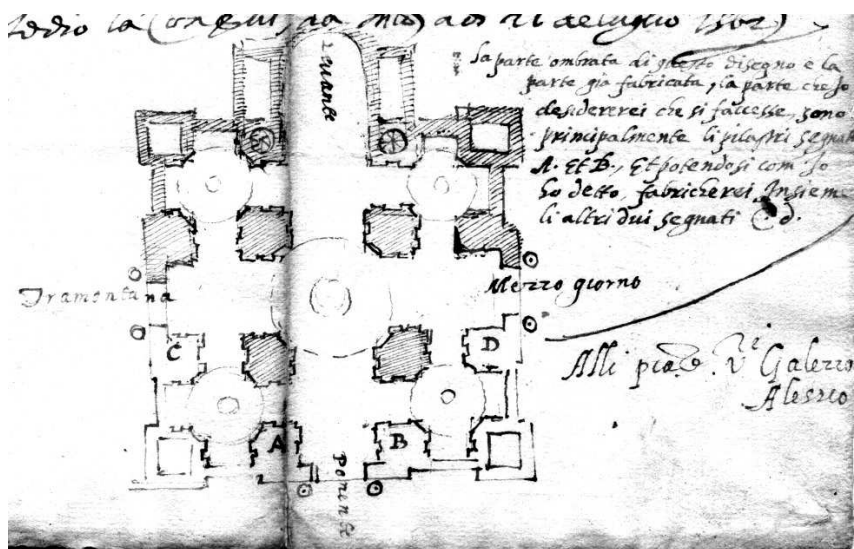 la
de luglio
la parte ombrata di questo disegno e la
parte già fabricata, la parte che Io
desidererei che si facesse, sono
principalmente li pilastri segnati
A. Et B., Et potendosi com Io
ho detto, fabricherei Insieme
li altri dui segnati C. d.
Levante
Tramontana
Mezzo giorno
C
D
Alli
Galeazzo
Alessio
A
B
Ponente